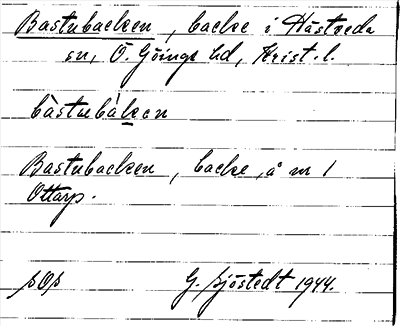 Bastubacken, backe i Hästveda
sn, Ö. Göinge hd, Krist. l.
bàstubàken
Bastubacken, backe, å nr 1
Ottarp.
sOs G. Sjöstedt 1944.